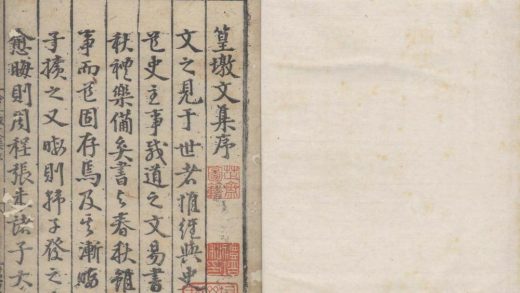 篁墩文集序
文之見于世者惟經與史
苍史主事我道之文易書
秋禮樂備矣書與春秋雖
事而道固存焉及其漸晦
子擴之又晦則韓子發之
愈晦則周程張朱諸子大